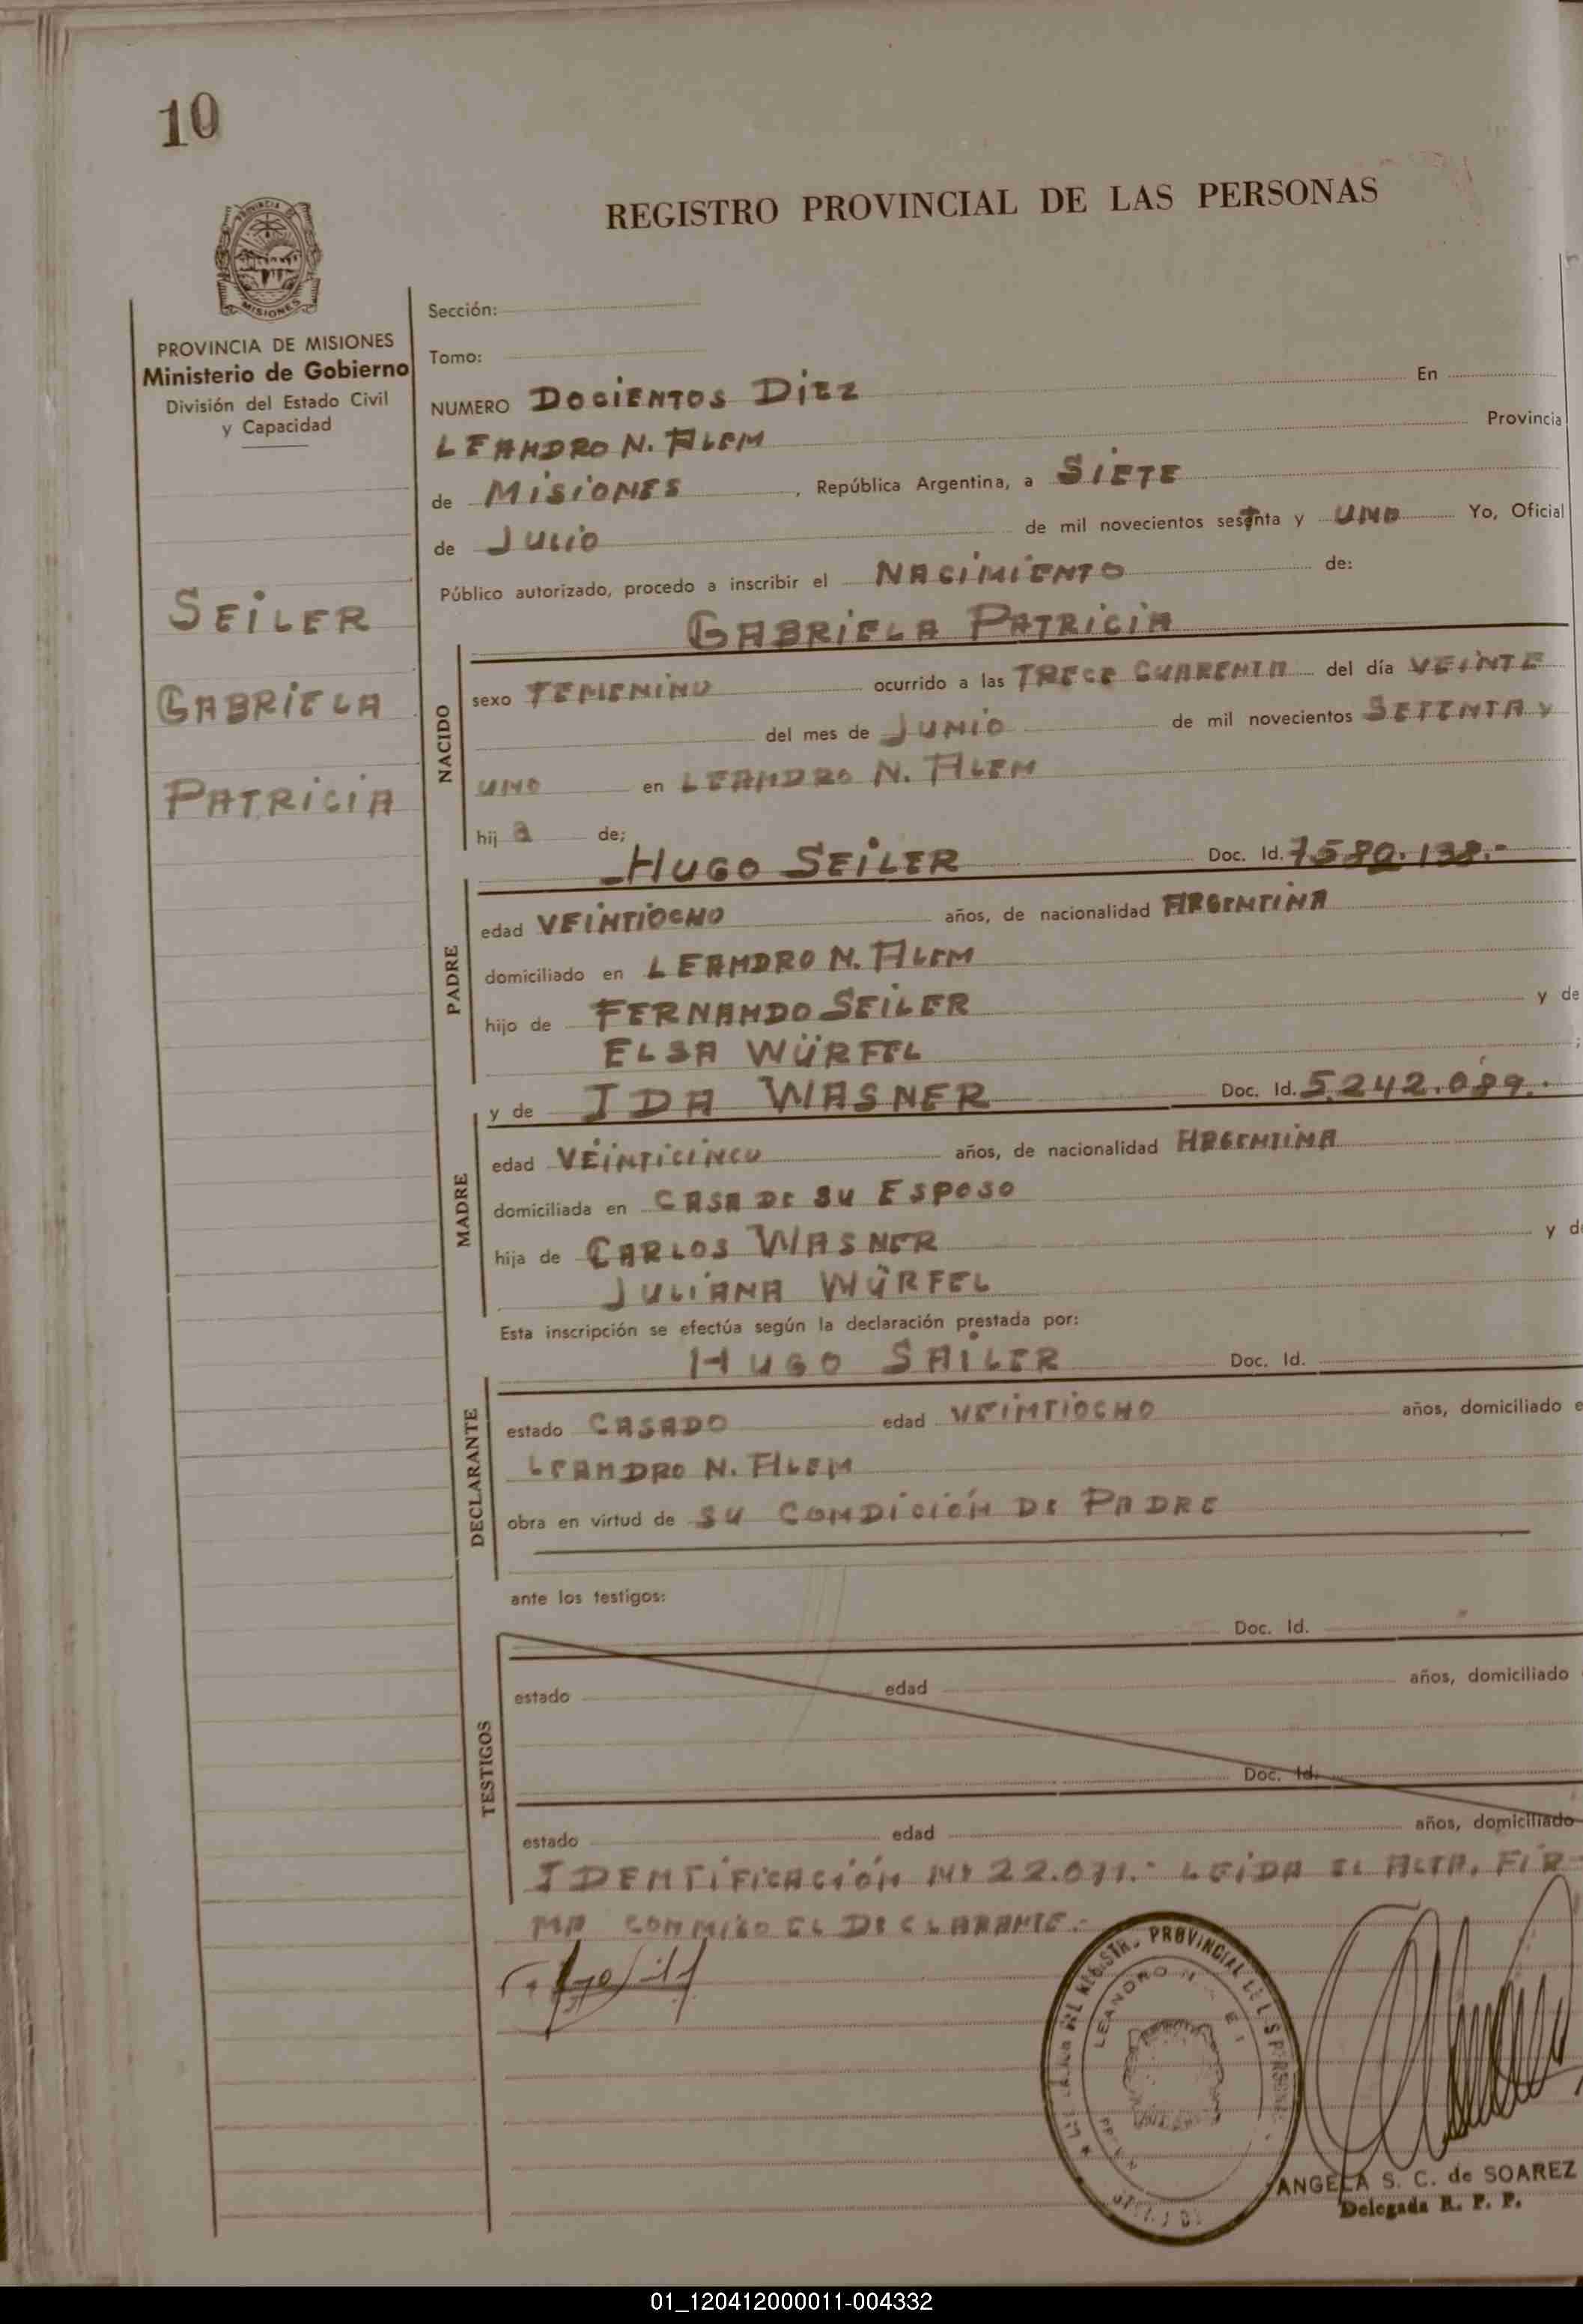 10
REGISTRO PROVINCIAL DE LAS PERSONAS
PROVINCIA DE
MISIONES
PROVINCIA DE MISIONES
Ministerio de Gobierno
División del Estado Civil
y Capacidad
SEILER
GABRIELA
PATRICIA
Sección:
Tomo:
NUMERO DOCIENTOS DIEZ En
LEANDRO N. ALEM Provincia
de MISIONES, República Argentina, a SIETE
de JULIO de mil novecientos setenta y UNO Yo, Oficial
Público autorizado, procedo a inscribir el NACIMIENTO de:
GABRIELA PATRICIA
NACIDO
sexo FEMENINO ocurrido a las TRECE CUARENTA del día VEINTE
del mes de JUNIO de mil novecientos SETENTA Y
UNO en LEANDRO N. ALEM
hij a de;
HUGO SEILER Doc. Id. 7580.138.-
PADRE
edad VEINTIOCHO años, de nacionalidad ARGENTINA
domiciliado en LEANDRO N. ALEM
hijo de FERNANDO SEILER y de
ELSA WÜRFEL ;
y de IDA WASNER Doc. Id. 5.242.089.
MADRE
edad VEINTICINCO años, de nacionalidad ARGENTINA
domiciliada en CASA DE SU ESPOSO
hija de CARLOS WASNER y de
JULIANA WÜRFEL
Esta inscripción se efectúa según la declaración prestada por:
HUGO SAILER Doc. Id.
DECLARANTE
estado CASADO edad VEINTIOCHO años, domiciliado e
LEANDRO N. ALEM
obra en virtud de SU CONDICIÓN DE PADRE
ante los testigos:
Doc. Id.
TESTIGOS
estado edad años, domiciliado
Doc. Id.
estado edad años, domiciliado
IDENTIFICACIÓN Nº 22.071.- LEIDA EL ACTA, FIR-
MA CONMIGO EL DECLARANTE.-
REGISTR. PROVINCIAL DE L S PERSON
LEANDRO N.
ANGELA S. C. de SOAREZ
Delegada R. P. P.
01_120412000011-004332